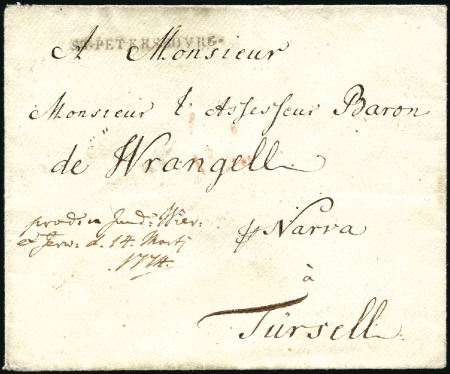 ST·PETERSBOVRG
A Monsieur
Monsieur l'Assesseur Baron
de Wrangell
prod: in Jud: Wier:
et Jerw: d. 14. Martj
1774.
p Narva
à
Türsell